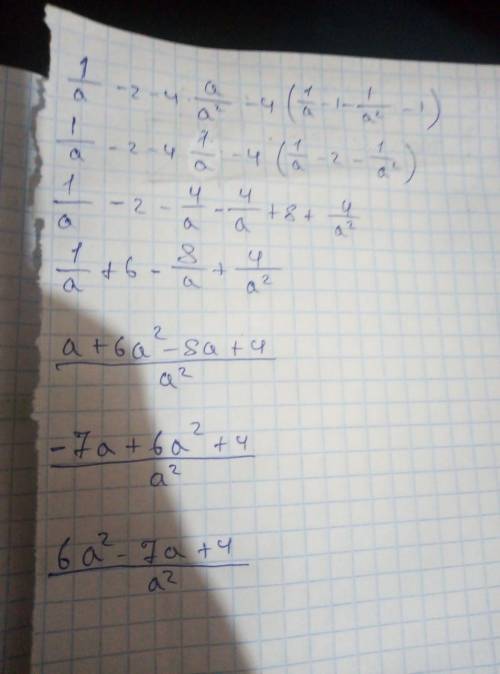 1/a - 2 - 4 · a/a² - 4 (1/a - 1 - 1/a² - 1)
1/a - 2 - 4 1/a - 4 (1/a - 2 - 1/a²)
1/a - 2 - 4/a - 4/a + 8 + 4/a²
1/a + 6 - 8/a + 4/a²
(a + 6a² - 8a + 4)/a²
(-7a + 6a² + 4)/a²
(6a² - 7a + 4)/a²